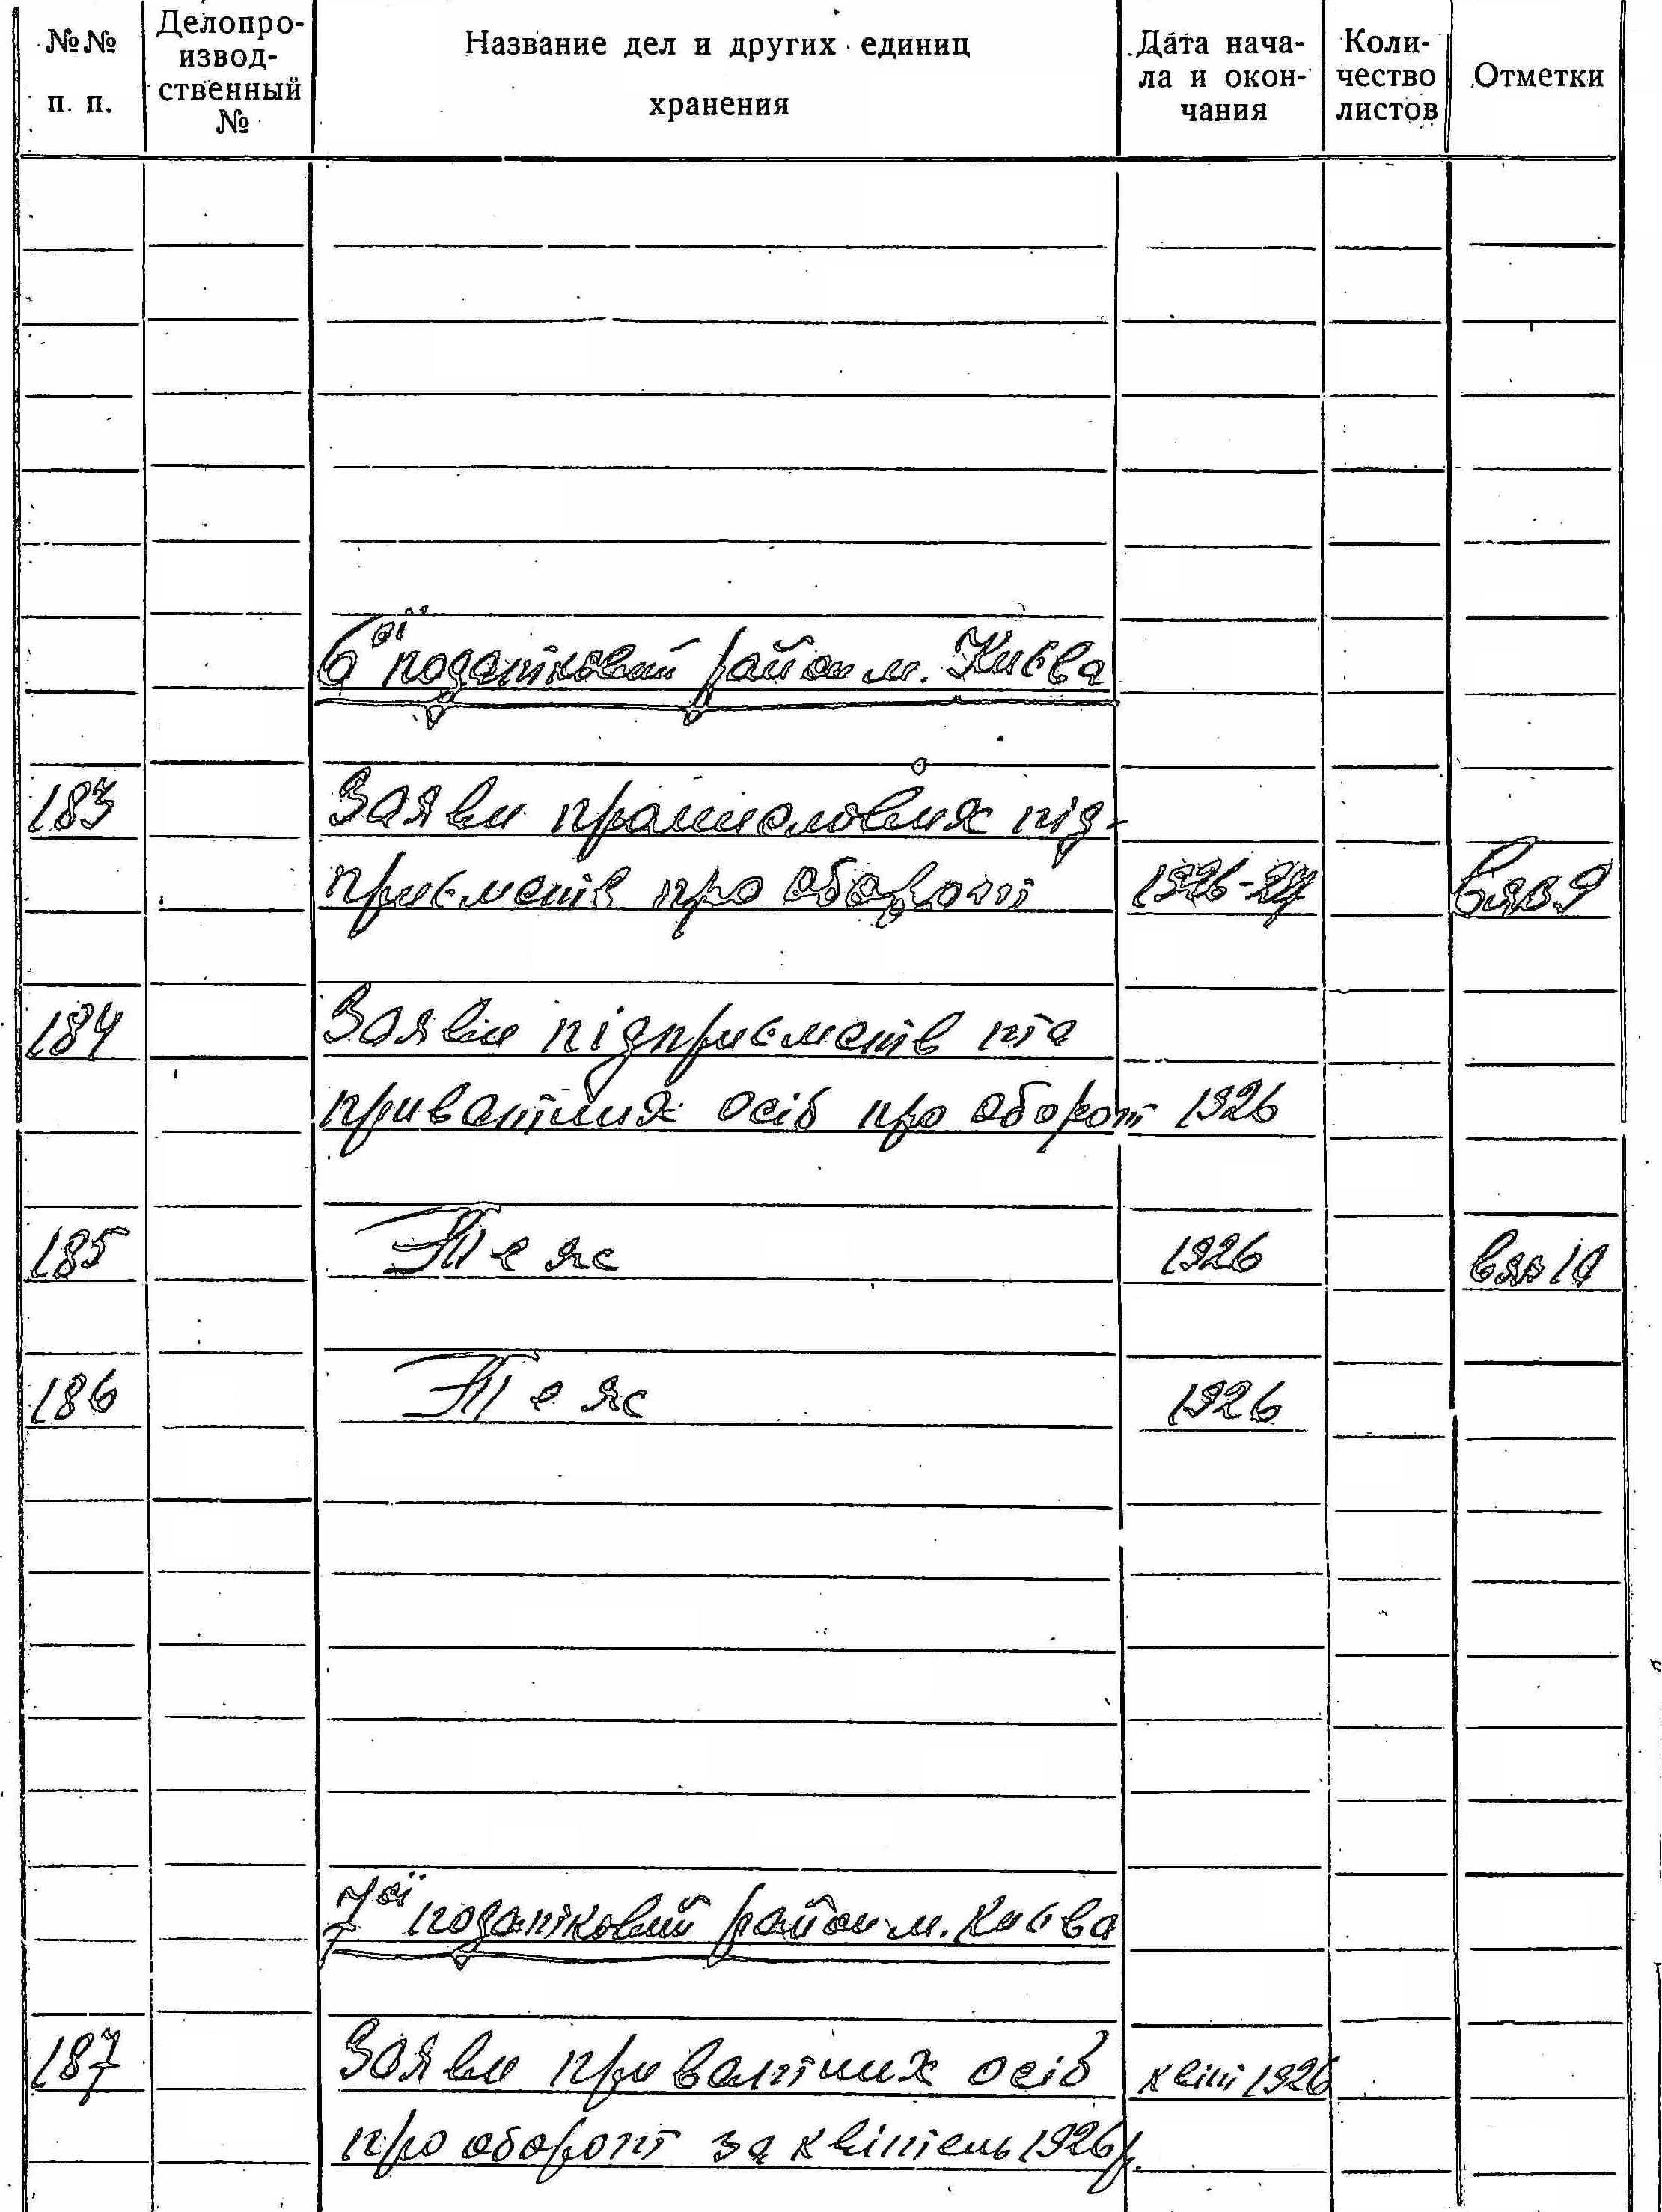 №№ п. п.
Делопро-
извод-
ственный
№
Название дел и других единиц
хранения
Дата нача-
ла и окон-
чания
Коли-
чество
листов
Отметки
6ой податковий район м. Києва
183 Заяви промислових під-
приємств про оборот 1926-27
184 Заяви підприємств та
приватних осіб про оборот 1926
185 Теж 1926
186 Теж 1926
7ой податковий район м. Києва
187 Заяви приватних осіб квіт 1926
про оборот за квітень 1926 р.